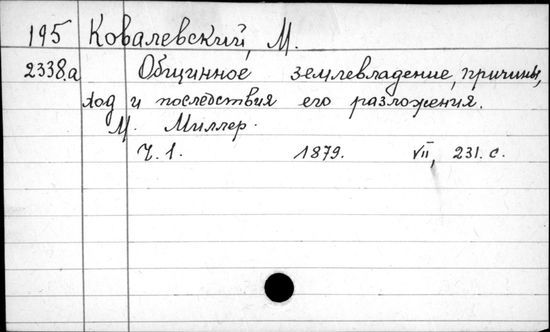 195 Ковалевский, М.
2338.а Общинное землевладение, причины,
ход и последствия его разложения.
М. Миллер.
Ч. 1. 1879. VII, 231. с.